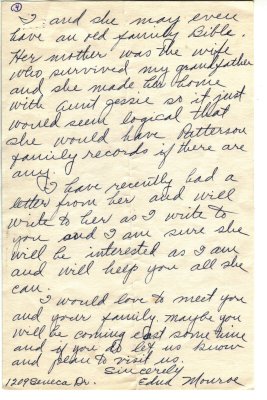 ④
I and she may even
have an old family Bible.
Her mother was the wife
who survived my grandfather
and she made her home
with Aunt Jessie so it just
would seem logical that
she would have Patterson
family records if there are
any.
I have recently had a
letter from her and will
write to her as I write to
you and I am sure she
will be interested as I am
and will help you all she
can.
I would love to meet you
and your family. maybe you
will be coming east some time
and if you do let us know
and plan to visit us.
Sincerely
1209 Seneca Dr. Edna Monroe